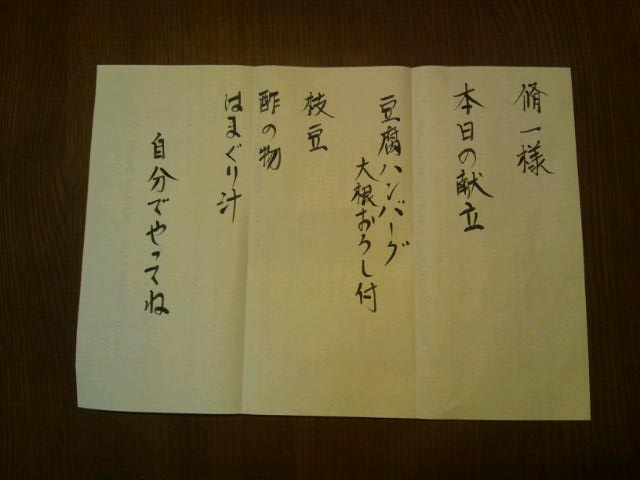 脩一様
本日の献立
豆腐ハンバーグ
大根おろし付
枝豆
酢の物
はまぐり汁
自分でやってね